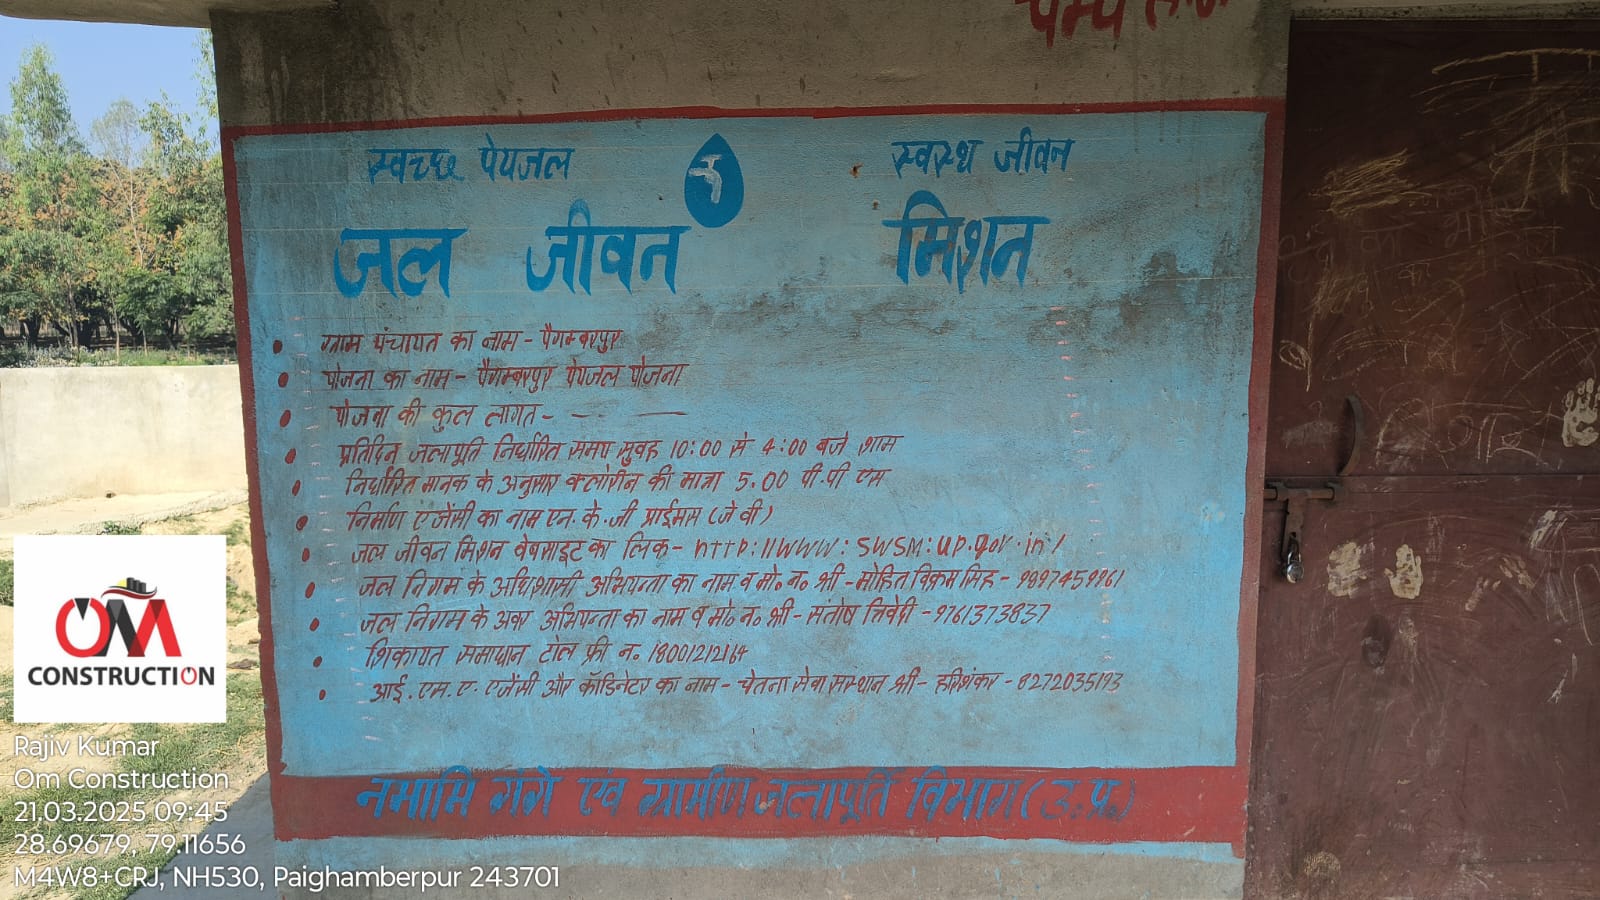 पम्प
स्वच्छ पेयजल स्वस्थ जीवन
जल जीवन मिशन
ग्राम पंचायत का नाम - पैगम्बरपुर
योजना का नाम - पैगम्बरपुर पेयजल योजना
योजना की कुल लागत - - —
प्रतिदिन जलापूर्ति निर्धारित समय सुवह 10:00 से 4:00 बजे शाम
निर्धारित मानक के अनुसार क्लोरीन की मात्रा 5.00 पी.पी एम
निर्माण एजेंसी का नाम एन. के. जी प्राईमस (जे वी)
जल जीवन मिशन वेबसाइट का लिंक - http://www:swsm:up.gov.in/
जल निगम के अधिशासी अभियन्ता का नाम व मो० न० श्री - मोहित विक्रम सिंह -
जल निगम के अवर अभियन्ता का नाम व मो० न० श्री - संतोष त्रिवेदी - 9761373837
शिकायत समाधान टोल फ्री न० 18001212164
आई. एस. ए. एजेंसी और कॉडिनेटर का नाम - चेतना सेवा संस्थान श्री - हरिशंकर - 8272035193
नमामि गंगे एंव ग्रामीण जलापूर्ति विभाग (उ.प्र.)
OM
CONSTRUCTION
Rajiv Kumar
Om Construction
21.03.2025 09:45
28.69679, 79.11656
M4W8+CRJ, NH530, Paighamberpur 243701